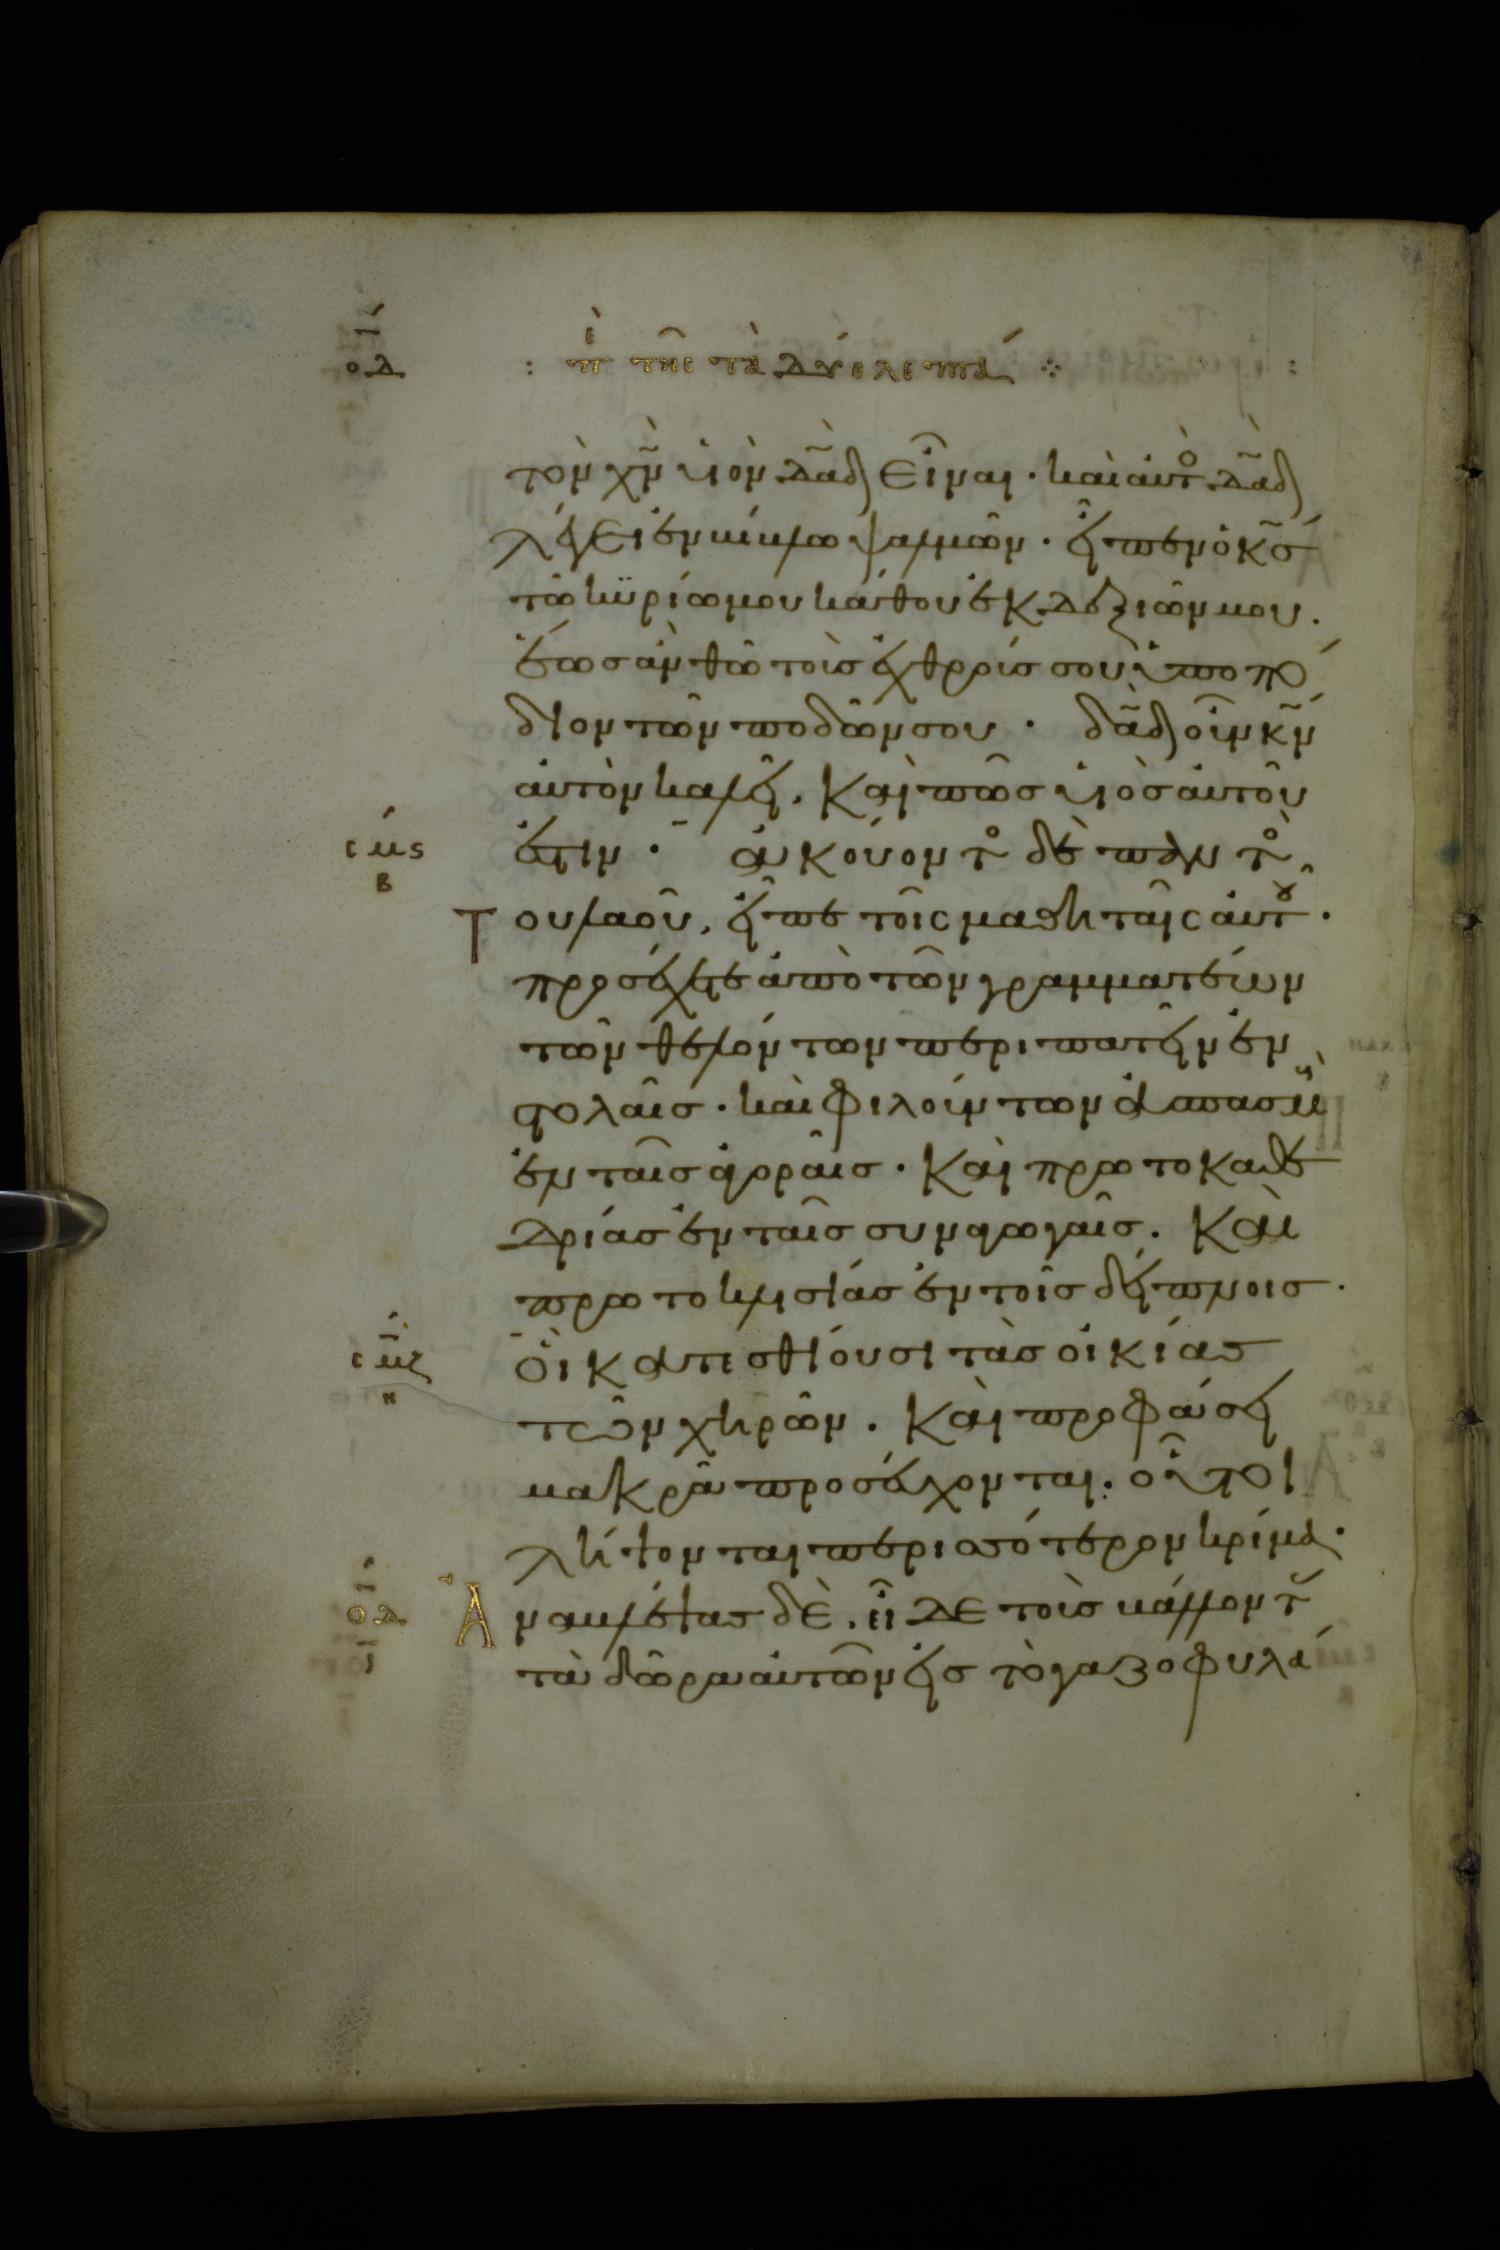 οδ : περὶ τῆς τὰ δύο λεπτά :
τὸν χ̅ν̅ υἱὸν δα̅δ̅ εἶναι · καὶ αυτο δα̅δ̅
λέγει ἐν βίβλω ψαλμῶν · εἶπεν ὁ κ̅ς̅
τῶ κυρίω μου κάθου ἐκ δεξιῶν μου.
ἕως ἂν θῶ τοὺσ ἐχθρούσ σου ὑποπό
διον τῶν ποδῶν σου · δα̅δ̅ οὖν κ̅ν̅
αὐτὸν καλεῖ, καὶ πῶσ υἱὸσ αὐτοῦ
σμς
β
ἐστιν · ἀκούοντο δὲ παντο
Του λαοῦ, εἶπε τοῖς μαθηταῖς αὐτου ·
προσέχετε ἀπὸ τῶν γραμματέων
τῶν θελόντων περιπατεῖν ἐν
στολαῖσ · καὶ φιλούντων ἀσπασμοὺ
ἐν ταῖσ ἀγοραῖσ · καὶ πρωτοκαθε
δρίασ ἐν ταῖσ συναγωγαῖσ. καὶ
πρωτοκλισίασ ἐν τοῖσ δείπνοισ ·
σμζ
η
Οἳ κατεσθίουσι τὰσ οἰκίασ
τῶν χηρῶν. καὶ προφάσει
μακρὰ προσεύχονται · οὗτοι
λήψονται περισσότερον κρίμα ·
οδ
Ἀναβλέψασ δὲ, εἶδε τοὺσ βάλλοντ
τὰ δῶρα αὐτῶν εἰσ τὸ γαζοφυλά